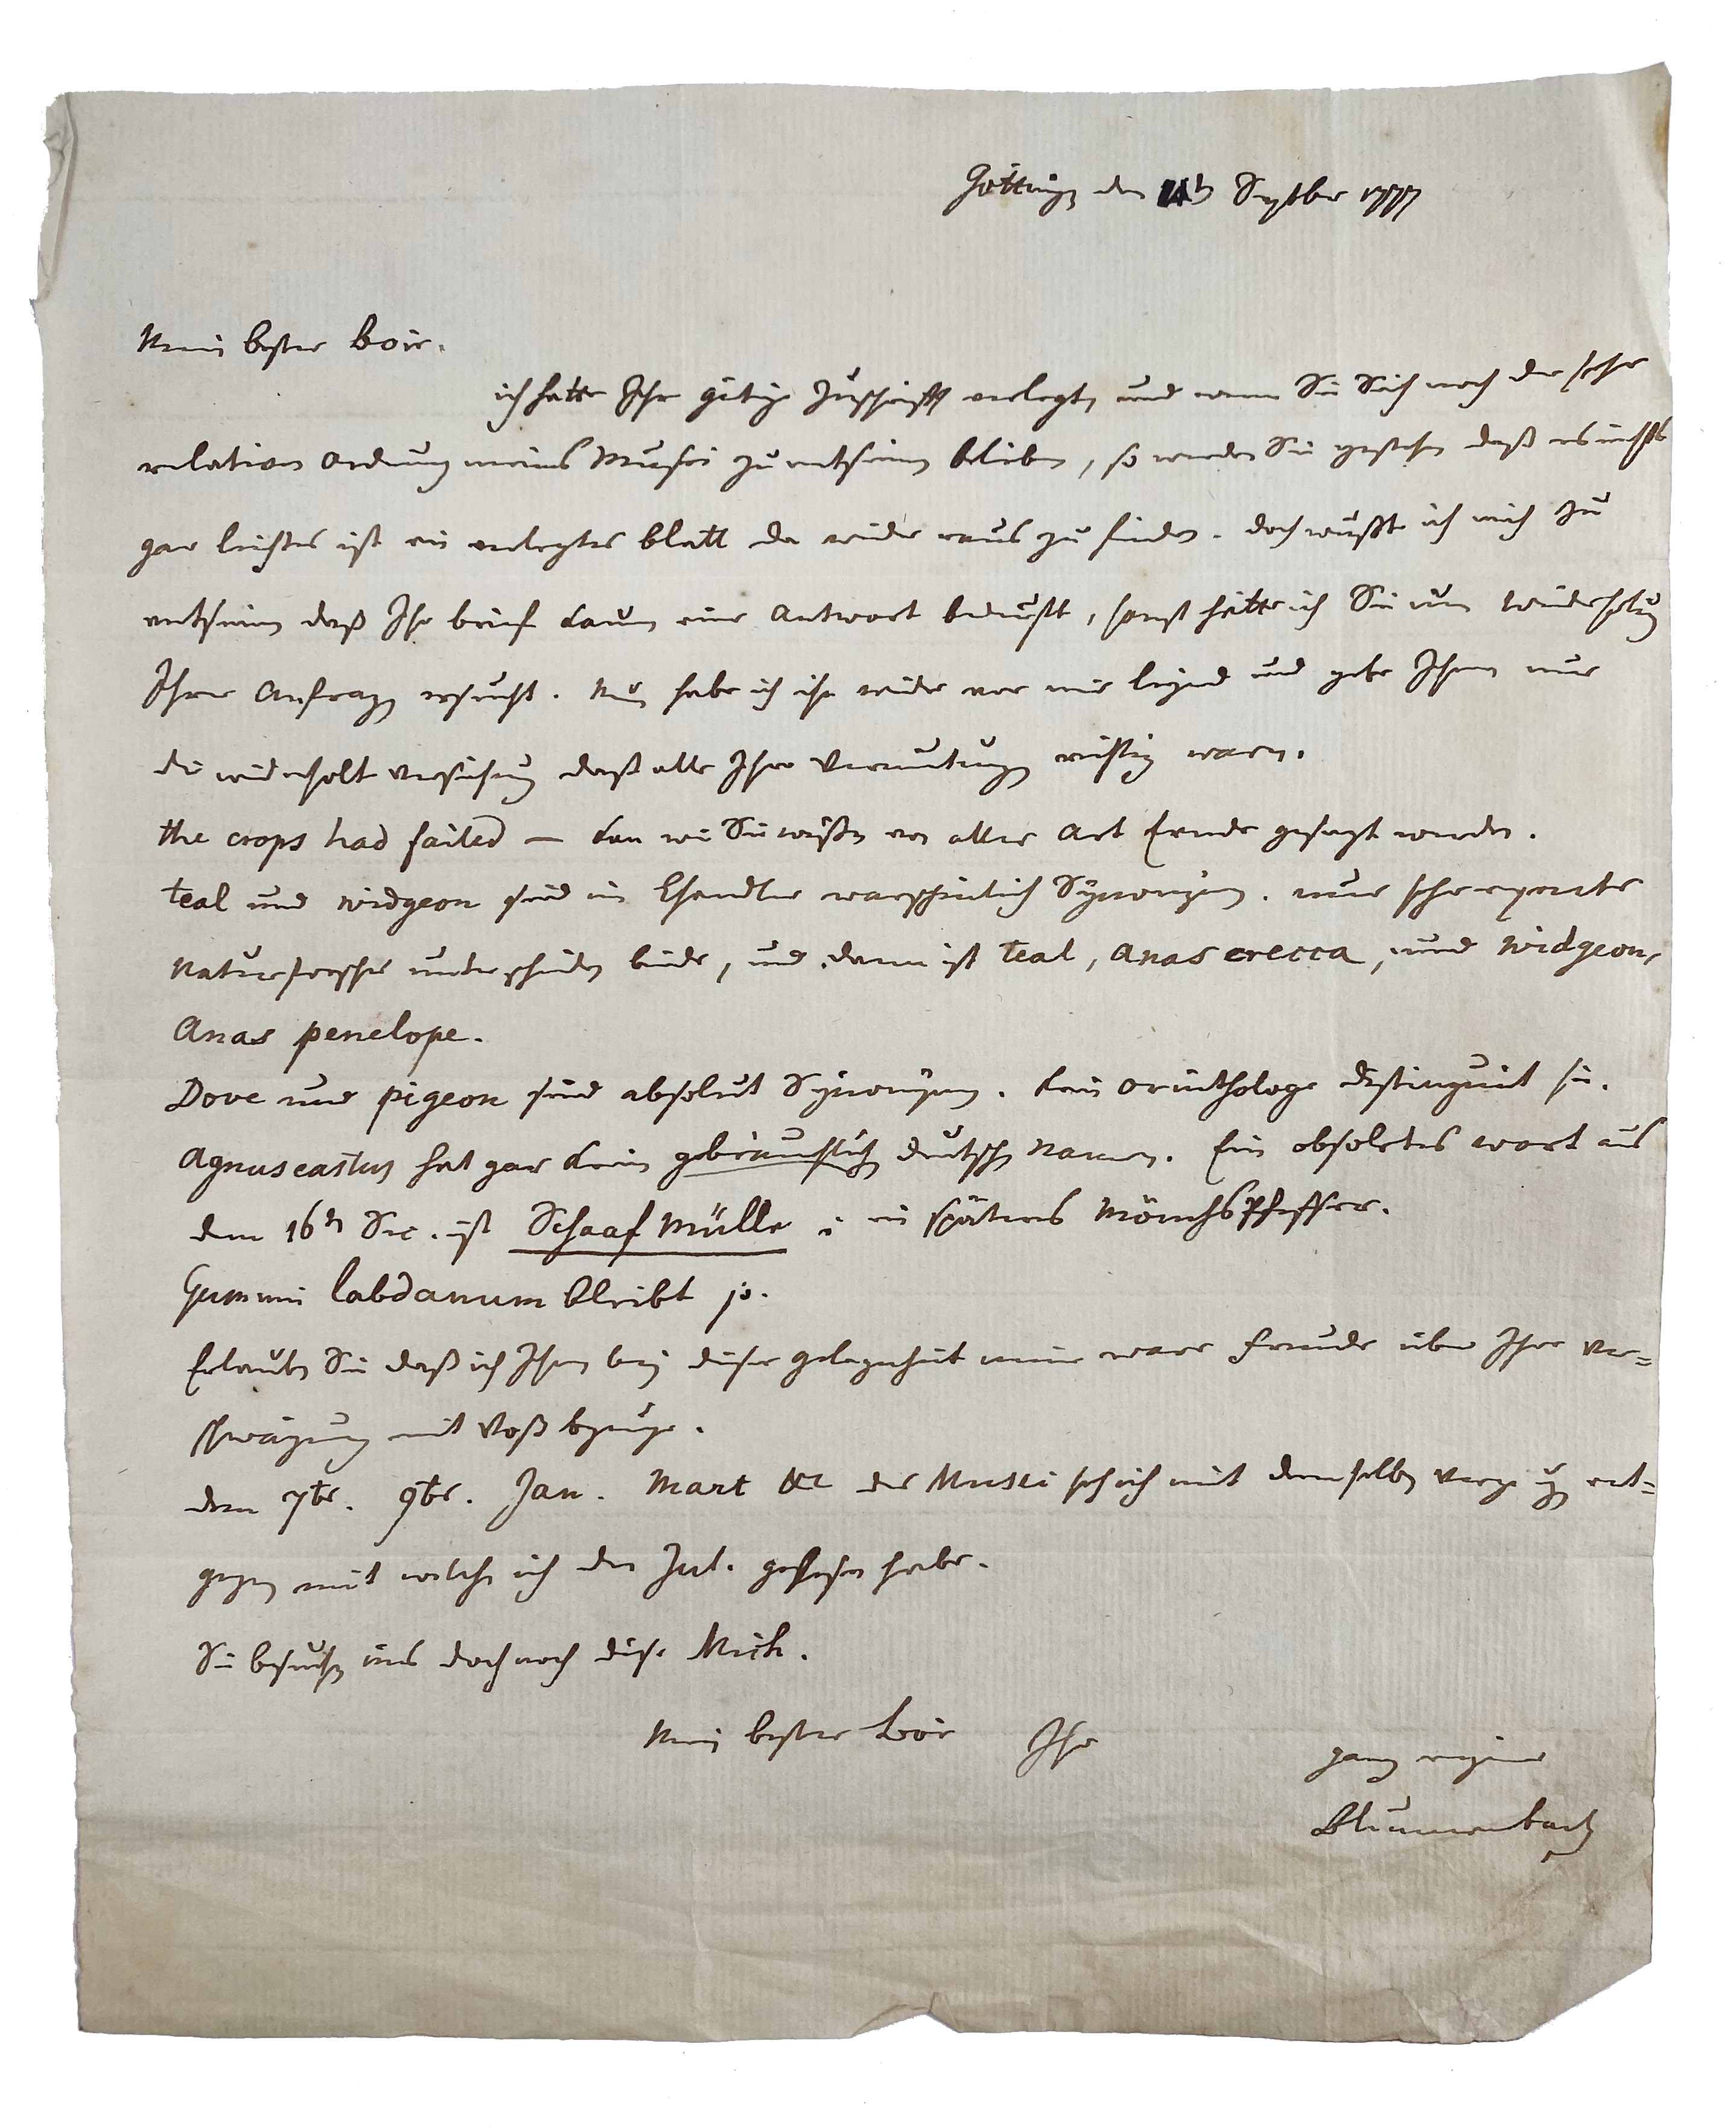 Göttingen den 4t Septber 1777
Mein bester Boie.
ich hatte Ihre gütige Zuschrifft verlegt, und wenn Sie Sich noch der sehr
relativen Ordnung meines Musei zu entsinnen belieben, so werden Sie gestehen daß es nichts
gar leichtes ist ein verlegtes blatt da wieder raus zu finden. doch wußte ich mich zu
entsinnen daß Ihr brief kaum eine Antwort bedurfte, sonst hätte ich Sie um Wiederholung
Ihrer Anfragen ersucht. Nun habe ich ihn wieder vor mir liegend und gebe Ihnen nur
die wiederholte Versicherung daß alle Ihre Vermutungen richtig waren.
the crops had failed — kan wie Sie wißen von aller Art Ernde gesagt werden.
teal und widgeon sind im Chandler warscheinlich Synonymen. nur sehr exacte
Naturforscher unterscheiden beide, und dann ist teal, Anas crecca, und widgeon,
Anas penelope.
Dove und pigeon sind absolut Synonymen. kein Ornithologe distinguirt sie.
Agnus castus hat gar kein gebräuchlichen deutschen Namen. Ein obsoletes wort aus
dem 16ten Sec. ist Schaaf Mülle; ein späteres Mönchspfeffer.
Gummi labdanum bleibt so.
Erlauben Sie daß ich Ihnen bey dieser Gelegenheit meine ware Freude über Ihre Ver=
schwägerung mit Voß bezeuge.
dem 7br. 9br. Jan. Mart &c des Musei seh ich mit demselben Vergnügen ent=
gegen mit welchem ich den Jul. gelesen habe.
Sie besuchen uns doch noch diese Mich.
Mein bester Boie Ihr
ganz eigner
Blumenbach